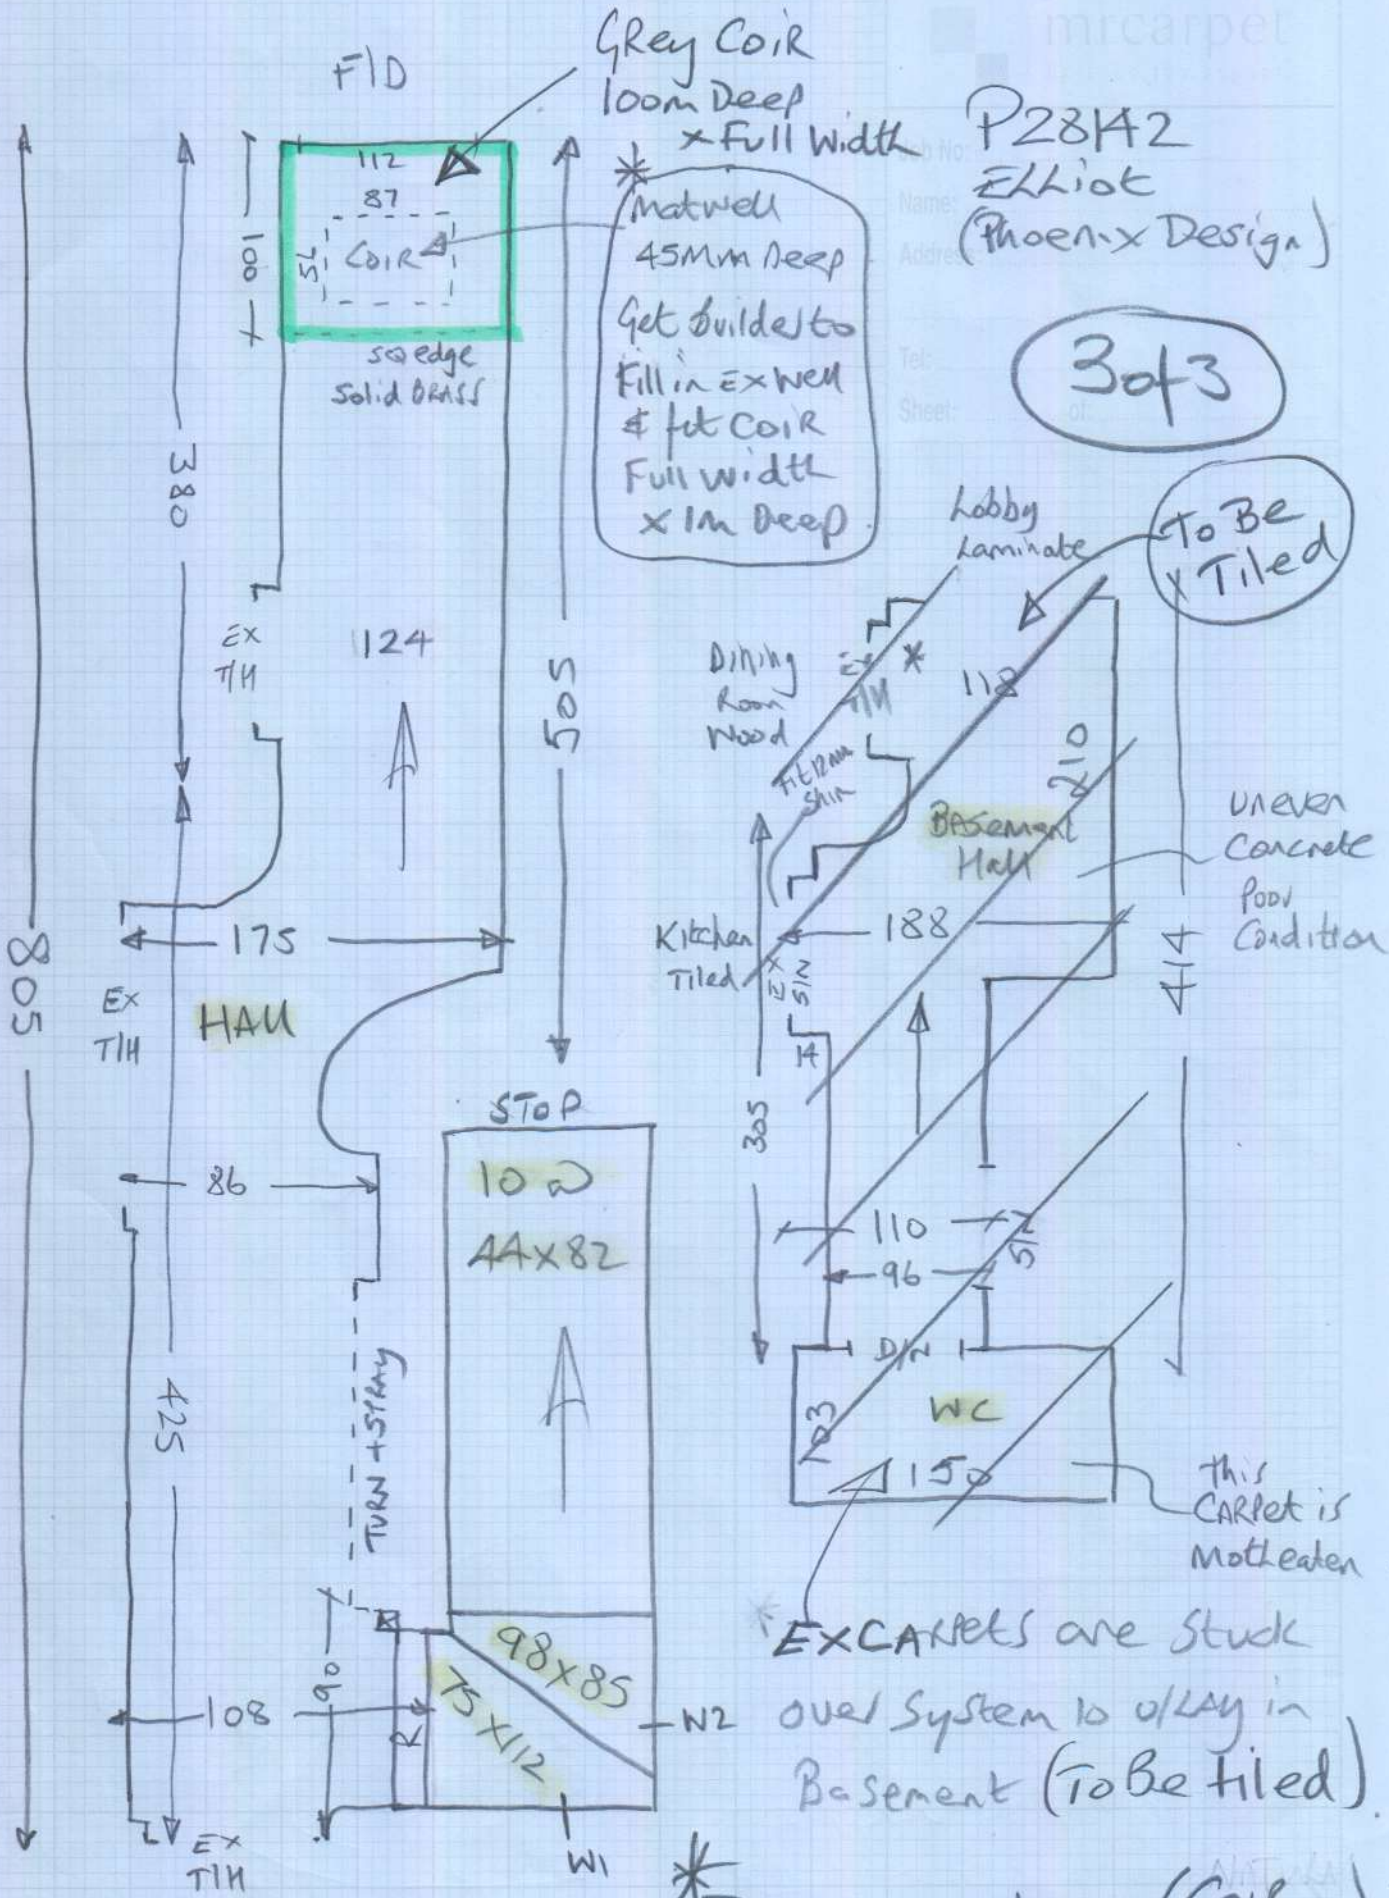 mrcarpet
F/D
GRey CoiR
100m Deep
x Full Width
Job No:
P28142
Name:
Elliot
Address:
(Phoenix Design)
Tel:
Sheet: of:
3 of 3
112
87
75
CoiR
100
sq edge
Solid BRASS
*
Matwell
45mm Deep
Get builder to
Fill in Ex Well
& fit CoiR
Full width
x 1m Deep
805
380
EX
T/H
124
505
175
EX
T/H
HAll
86
425
TURN + SPRAY
STOP
10
44x82
98x85
75x112
90
108
R
W2
W1
EX
T/H
Lobby
Laminate
To Be
Tiled
Dining
Room
Wood
EX
T/H
*
118
210
Basement
Hall
Uneven
Concrete
Poor
Condition
Kitchen
Tiled
EX
S/N
188
414
14
305
110
S/N
96
D/N
WC
103
150
This
CARPet is
Motheaten
* EX CARPets are Stuck
over System 10 o/LAy in
Basement (To Be tiled)
*